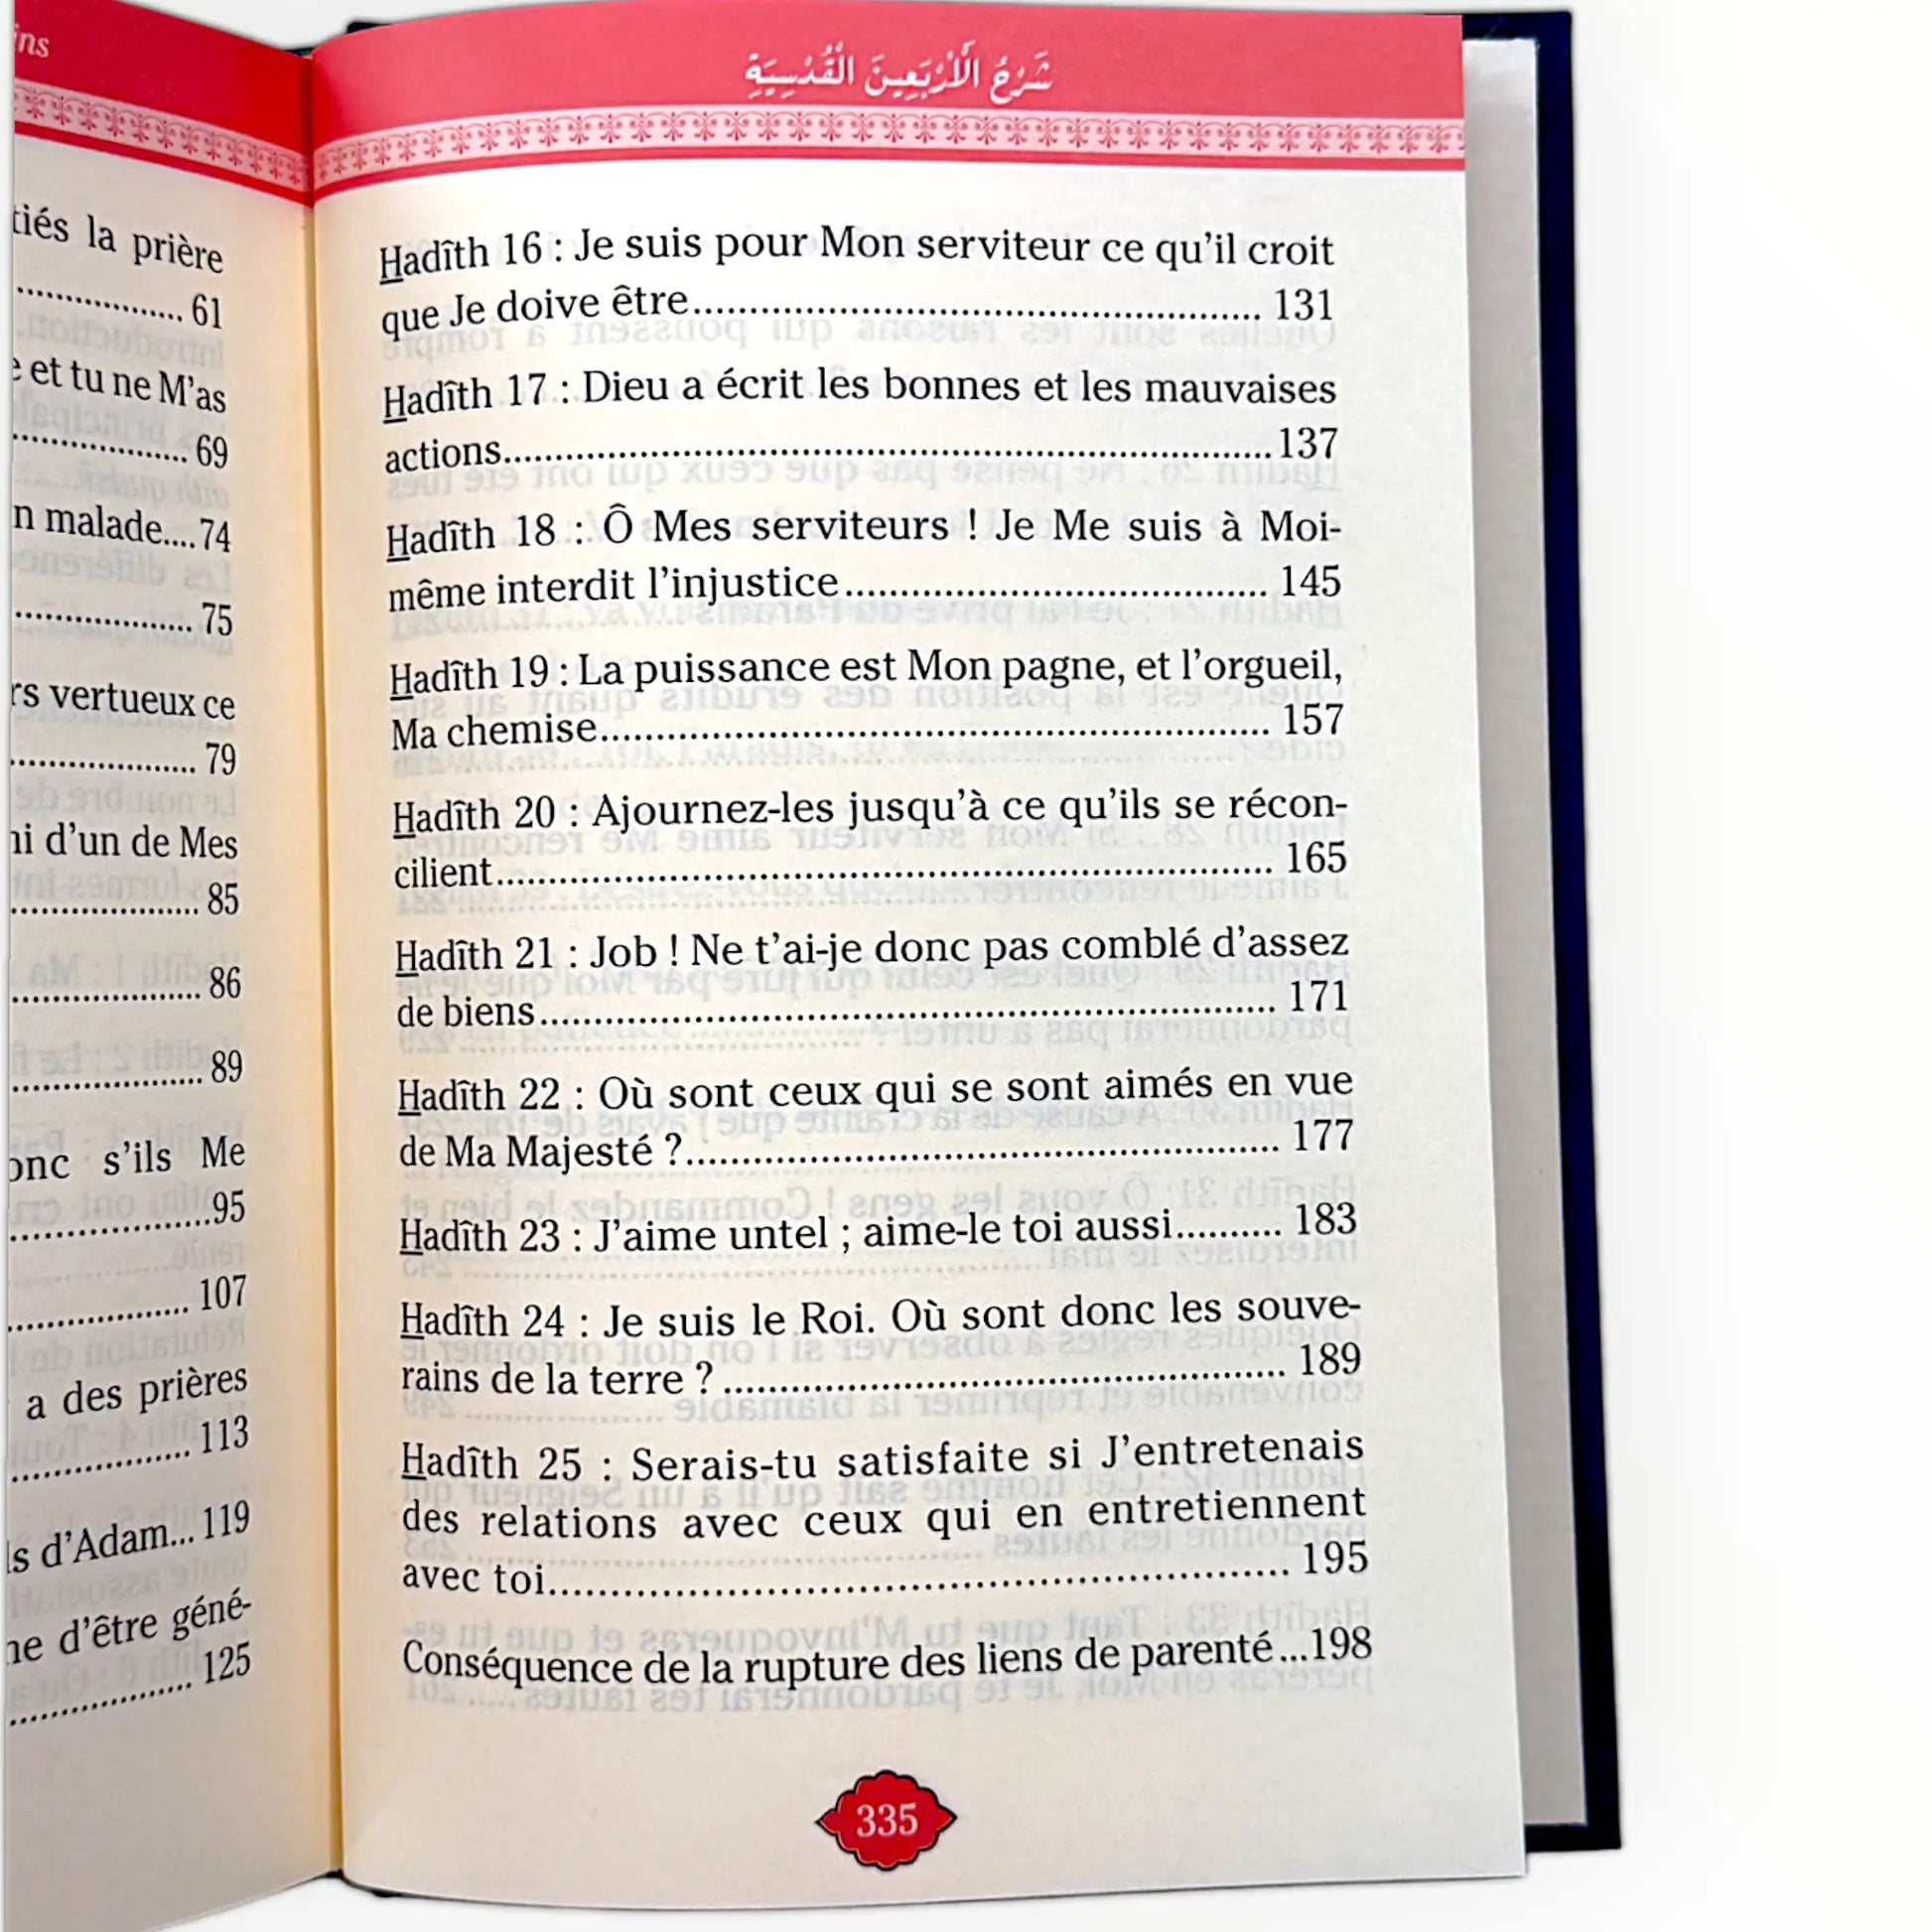 ins
tiés la prière
................. 61
et tu ne M'as
................. 69
n malade....74
.................. 75
rs vertueux ce
................... 79
d'un de Mes
................... 85
................... 86
................... 89
s'ils Me
....................95
................. 107
a des prières
................. 113
d'Adam... 119
d'être géné-
................. 125
شَرْحُ الْأَرْبَعِينَ الْقُدْسِيَّةِ
Hadîth 16 : Je suis pour Mon serviteur ce qu'il croit
que Je doive être...................................................... 131
Hadîth 17 : Dieu a écrit les bonnes et les mauvaises
actions.........................................................................137
Hadîth 18 : Ô Mes serviteurs ! Je Me suis à Moi-
même interdit l'injustice........................................ 145
Hadîth 19 : La puissance est Mon pagne, et l'orgueil,
Ma chemise............................................................... 157
Hadîth 20 : Ajournez-les jusqu'à ce qu'ils se récon-
cilient......................................................................... 165
Hadîth 21 : Job ! Ne t'ai-je donc pas comblé d'assez
de biens..................................................................... 171
Hadîth 22 : Où sont ceux qui se sont aimés en vue
de Ma Majesté ?........................................................ 177
Hadîth 23 : J'aime untel ; aime-le toi aussi.......... 183
Hadîth 24 : Je suis le Roi. Où sont donc les souve-
rains de la terre ?..................................................... 189
Hadîth 25 : Serais-tu satisfaite si J'entretenais
des relations avec ceux qui en entretiennent
avec toi...................................................................... 195
Conséquence de la rupture des liens de parenté...198
335